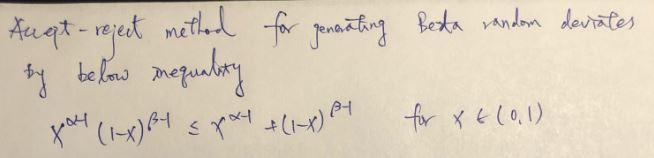 Accept-reject method for generating Beta random deviates
by below inequality
x^{α-1} (1-x)^{β-1} ≤ x^{α-1} + (1-x)^{β-1} for x ∈ (0,1)